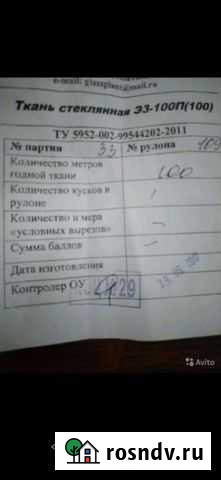 Ткань стеклянная ЭЗ-100П(100)
ТУ 5952-002-99544202-2011
№ партии 33 № рулона 109
Количество метров годной ткани 100
Количество кусков в рулоне
Количество и мера «условных вырезов» –
Сумма баллов –
Дата изготовления
Контролер ОУ 29
Avito
rosndv.ru